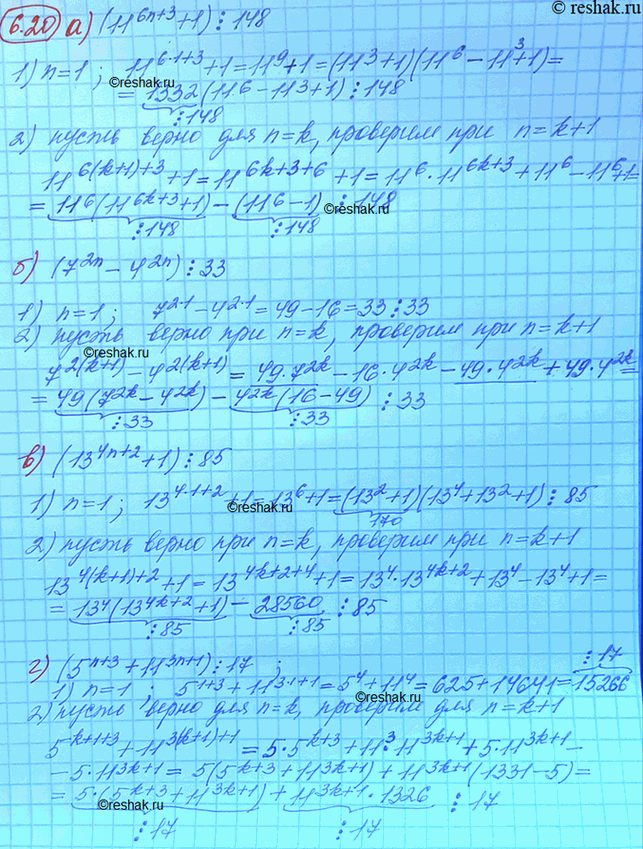 © reshak.ru
6.20 а) (11^{6n+3}+1)⋮148
1) n=1; 11^{6·1+3}+1=11^9+1=(11^3+1)(11^6-11^3+1)=
©reshak.ru
=1332(11^6-11^3+1)⋮148
⋮148
2) пусть верно для n=k, проверим при n=k+1
11^{6(k+1)+3}+1=11^{6k+3+6}+1=11^6·11^{6k+3}+11^6-11^6+1=
=11^6(11^{6k+3}+1)-(11^6-1)⋮148
©reshak.ru
⋮148 ⋮148
б) (7^{2n}-4^{2n})⋮33
1) n=1; 7^{2·1}-4^{2·1}=49-16=33⋮33
2) пусть верно при n=k, проверим при n=k+1
©reshak.ru
7^{2(k+1)}-4^{2(k+1)}=49·7^{2k}-16·4^{2k}-49·4^{2k}+49·4^{2k}=
=49(7^{2k}-4^{2k})-4^{2k}(16-49)⋮33
⋮33 ⋮33
в) (13^{4n+2}+1)⋮85
1) n=1; 13^{4·1+2}+1=13^6+1=(13^2+1)(13^4+13^2+1)⋮85
©reshak.ru
170
2) пусть верно при n=k, проверим при n=k+1
13^{4(k+1)+2}+1=13^{4k+2+4}+1=13^4·13^{4k+2}+13^4-13^4+1=
=13^4(13^{4k+2}+1)-28560⋮85
⋮85 ⋮85
г) (5^{n+3}+11^{3n+1})⋮17;
⋮17
1) n=1; 5^{1+3}+11^{3·1+1}=5^4+11^4=625+14641=15266
©reshak.ru
2) пусть верно для n=k, проверим для n=k+1
5^{k+1+3}+11^{3(k+1)+1}=5·5^{k+3}+11^3·11^{3k+1}+5·11^{3k+1}-
-5·11^{3k+1}=5(5^{k+3}+11^{3k+1})+11^{3k+1}(1331-5)=
=5·(5^{k+3}+11^{3k+1})+11^{3k+1}·1326⋮17
©reshak.ru
⋮17 ⋮17